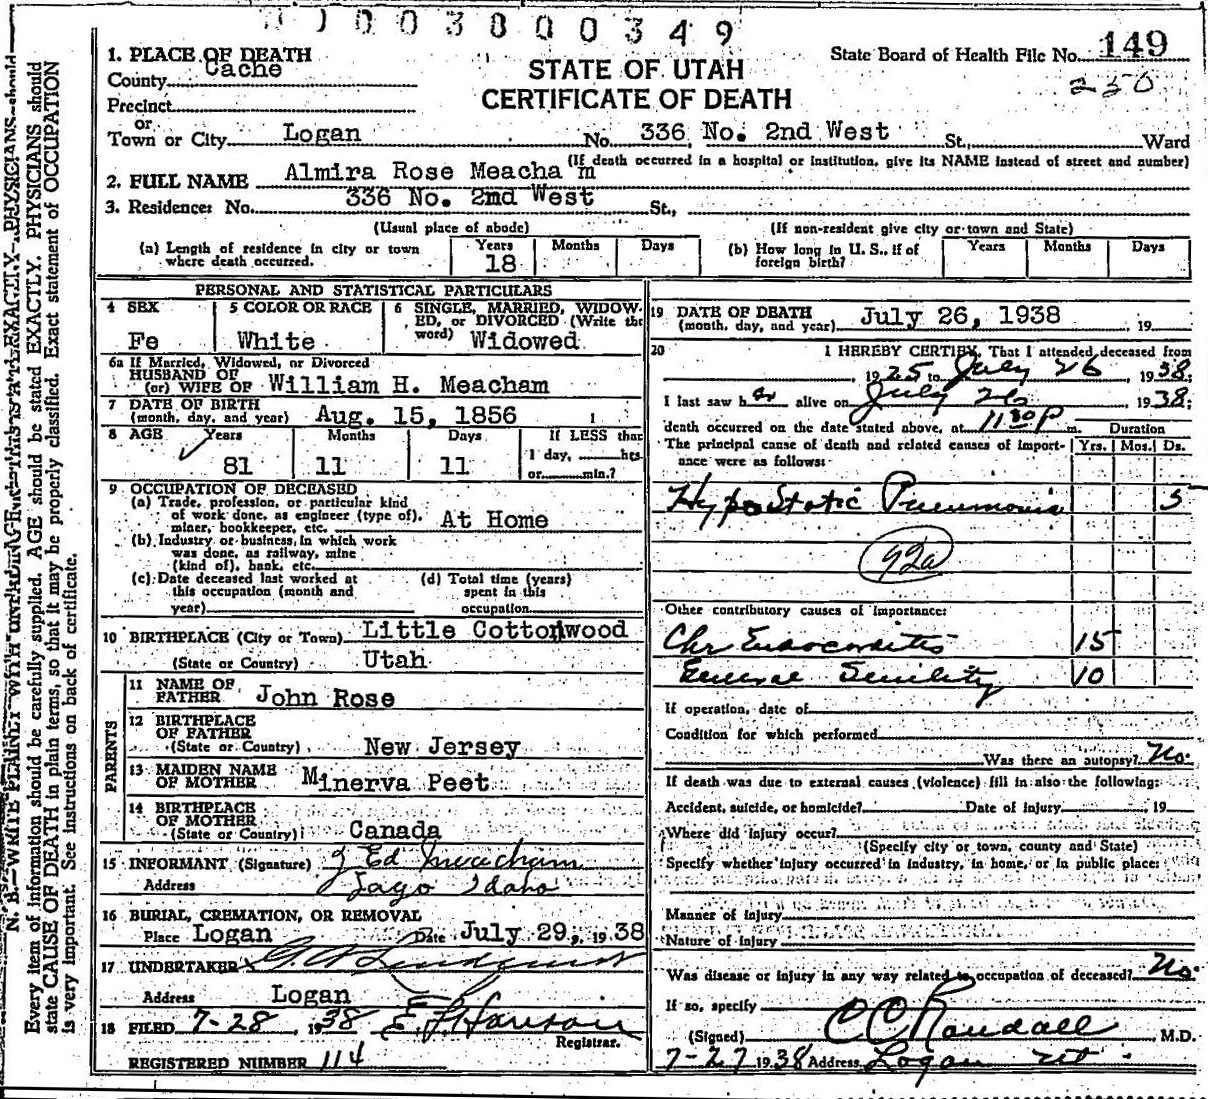 0003800349
State Board of Health File No. 149
250
STATE OF UTAH
CERTIFICATE OF DEATH
1. PLACE OF DEATH
County Cache
Precinct
or
Town or City Logan No. 336 No. 2nd West St., Ward
(If death occurred in a hospital or institution, give its NAME instead of street and number)
2. FULL NAME Almira Rose Meacha m
3. Residence: No. 336 No. 2md West St.,
(Usual place of abode) (If non-resident give city or town and State)
(a) Length of residence in city or town where death occurred. Years 18 Months Days
(b) How long in U. S., if of foreign birth? Years Months Days
PERSONAL AND STATISTICAL PARTICULARS
4 SEX Fe
5 COLOR OR RACE White
6 SINGLE, MARRIED, WIDOW-
ED, or DIVORCED (Write the
word) Widowed
6a If Married, Widowed, or Divorced
HUSBAND OF
(or) WIFE OF William H. Meacham
7 DATE OF BIRTH
(month, day, and year) Aug. 15, 1856
8 AGE Years 81 Months 11 Days 11
If LESS than
1 day, hrs
or min.?
9 OCCUPATION OF DECEASED
(a) Trade, profession, or particular kind
of work done, as engineer (type of),
miner, bookkeeper, etc. At Home
(b) Industry or business, in which work
was done, as railway, mine
(kind of), bank, etc.
(c) Date deceased last worked at
this occupation (month and
year)
(d) Total time (years)
spent in this
occupation
10 BIRTHPLACE (City or Town) Little Cottonwood
(State or Country) Utah
PARENTS
11 NAME OF
FATHER John Rose
12 BIRTHPLACE
OF FATHER
(State or Country) New Jersey
13 MAIDEN NAME
OF MOTHER Minerva Peet
14 BIRTHPLACE
OF MOTHER
(State or Country) Canada
15 INFORMANT (Signature) J Ed Meacham
Address Lago Idaho
16 BURIAL, CREMATION, OR REMOVAL
Place Logan Date July 29, 1938
17 UNDERTAKER
Address Logan
18 FILED 7-28, 1938
Registrar.
REGISTERED NUMBER 114
19 DATE OF DEATH
(month, day, and year) July 26, 1938 , 19
20 I HEREBY CERTIFY, That I attended deceased from
1925 to July 26 1938;
I last saw her alive on July 26 1938;
death occurred on the date stated above, at 11:30 P m.
Duration
The principal cause of death and related causes of import-
ance were as follows: Yrs. Mos. Ds.
HypoStatic Pneumonia 5
92a
Other contributory causes of importance:
Chr Endocarditis 15
General Senility 10
If operation, date of
Condition for which performed
Was there an autopsy? No.
If death was due to external causes (violence) fill in also the following:
Accident, suicide, or homicide? Date of injury 19
Where did injury occur?
(Specify city or town, county and State)
Specify whether injury occurred in industry, in home, or in public place:
Manner of injury
Nature of injury
Was disease or injury in any way related to occupation of deceased? No.
If so, specify
(Signed) C C Randall M.D.
7-27 1938 Address Logan Ut.
N. B.—WRITE PLAINLY WITH UNFADING
Every item of information should be carefully supplied. AGE should be stated EXACTLY. PHYSICIANS should
state CAUSE OF DEATH in plain terms, so that it may be properly classified. Exact statement of OCCUPATION
is very important. See instructions on back of certificate.